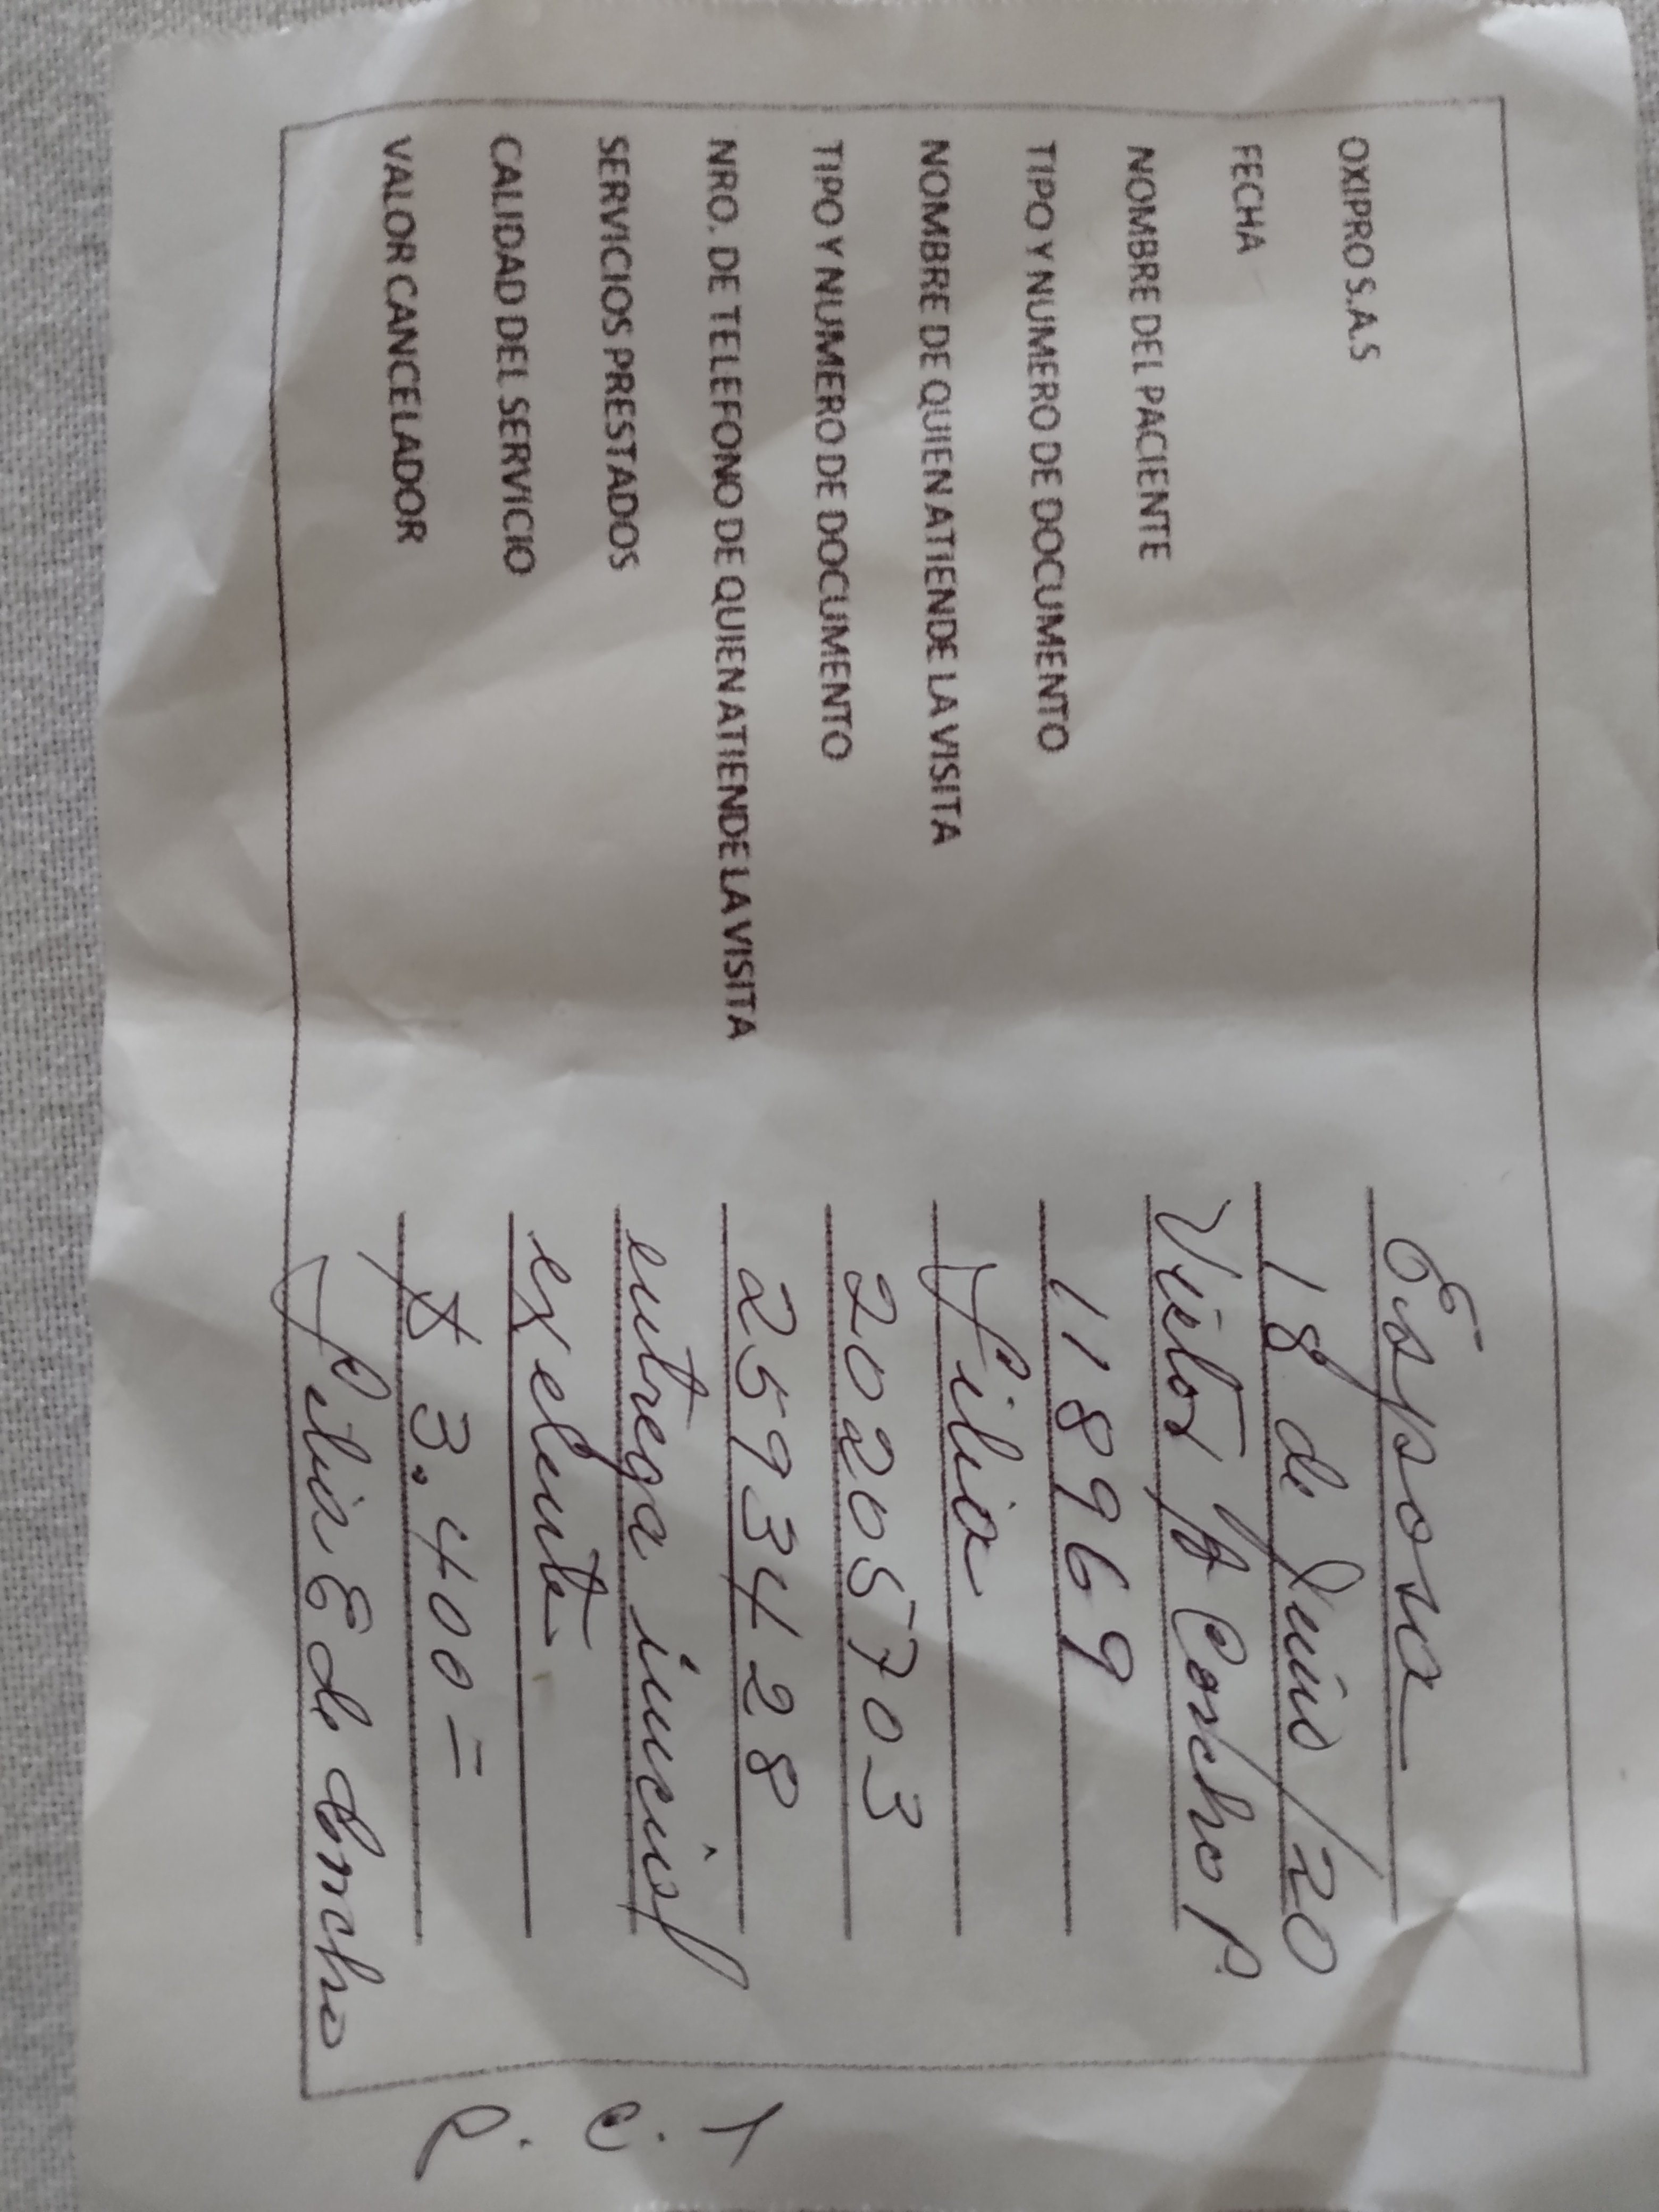 OXIPRO S.A.S Esposa
FECHA 18 de Junio/20
NOMBRE DEL PACIENTE Victor H Concho P.
TIPO Y NUMERO DE DOCUMENTO 118969
NOMBRE DE QUIEN ATIENDE LA VISITA Lilia
TIPO Y NUMERO DE DOCUMENTO 20205703
NRO. DE TELEFONO DE QUIEN ATIENDE LA VISITA 2593428
SERVICIOS PRESTADOS entrega inicial
CALIDAD DEL SERVICIO exelente
VALOR CANCELADOR $ 3.400=
Lilia E de Concho